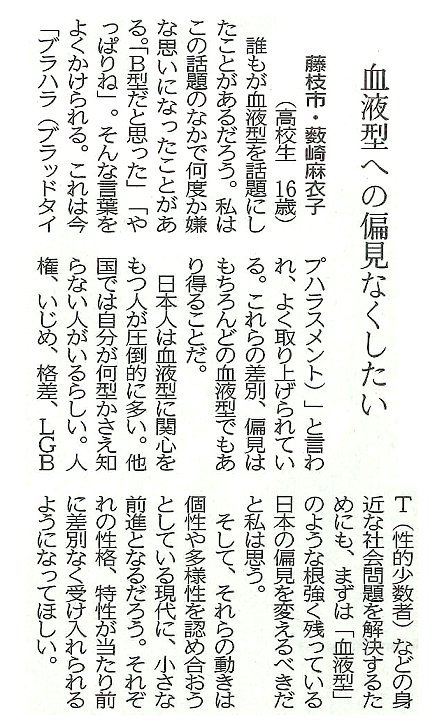 血液型への偏見なくしたい
藤枝市・藪崎麻衣子
(高校生 16歳)
誰もが血液型を話題にし
たことがあるだろう。私は
この話題のなかで何度か嫌
な思いになったことがあ
る。「B型だと思った」「や
っぱりね」。そんな言葉を
よくかけられる。これは今
「ブラハラ(ブラッドタイ
プハラスメント)」と言わ
れ、よく取り上げられてい
る。これらの差別、偏見は
もちろんどの血液型でもあ
り得ることだ。
日本人は血液型に関心を
もつ人が圧倒的に多い。他
国では自分が何型かさえ知
らない人がいるらしい。人
権、いじめ、格差、LGB
T(性的少数者)などの身
近な社会問題を解決するた
めにも、まずは「血液型」
のような根強く残っている
日本の偏見を変えるべきだ
と私は思う。
そして、それらの動きは
個性や多様性を認め合おう
としている現代に、小さな
前進となるだろう。それぞ
れの性格、特性が当たり前
に差別なく受け入れられる
ようになってほしい。